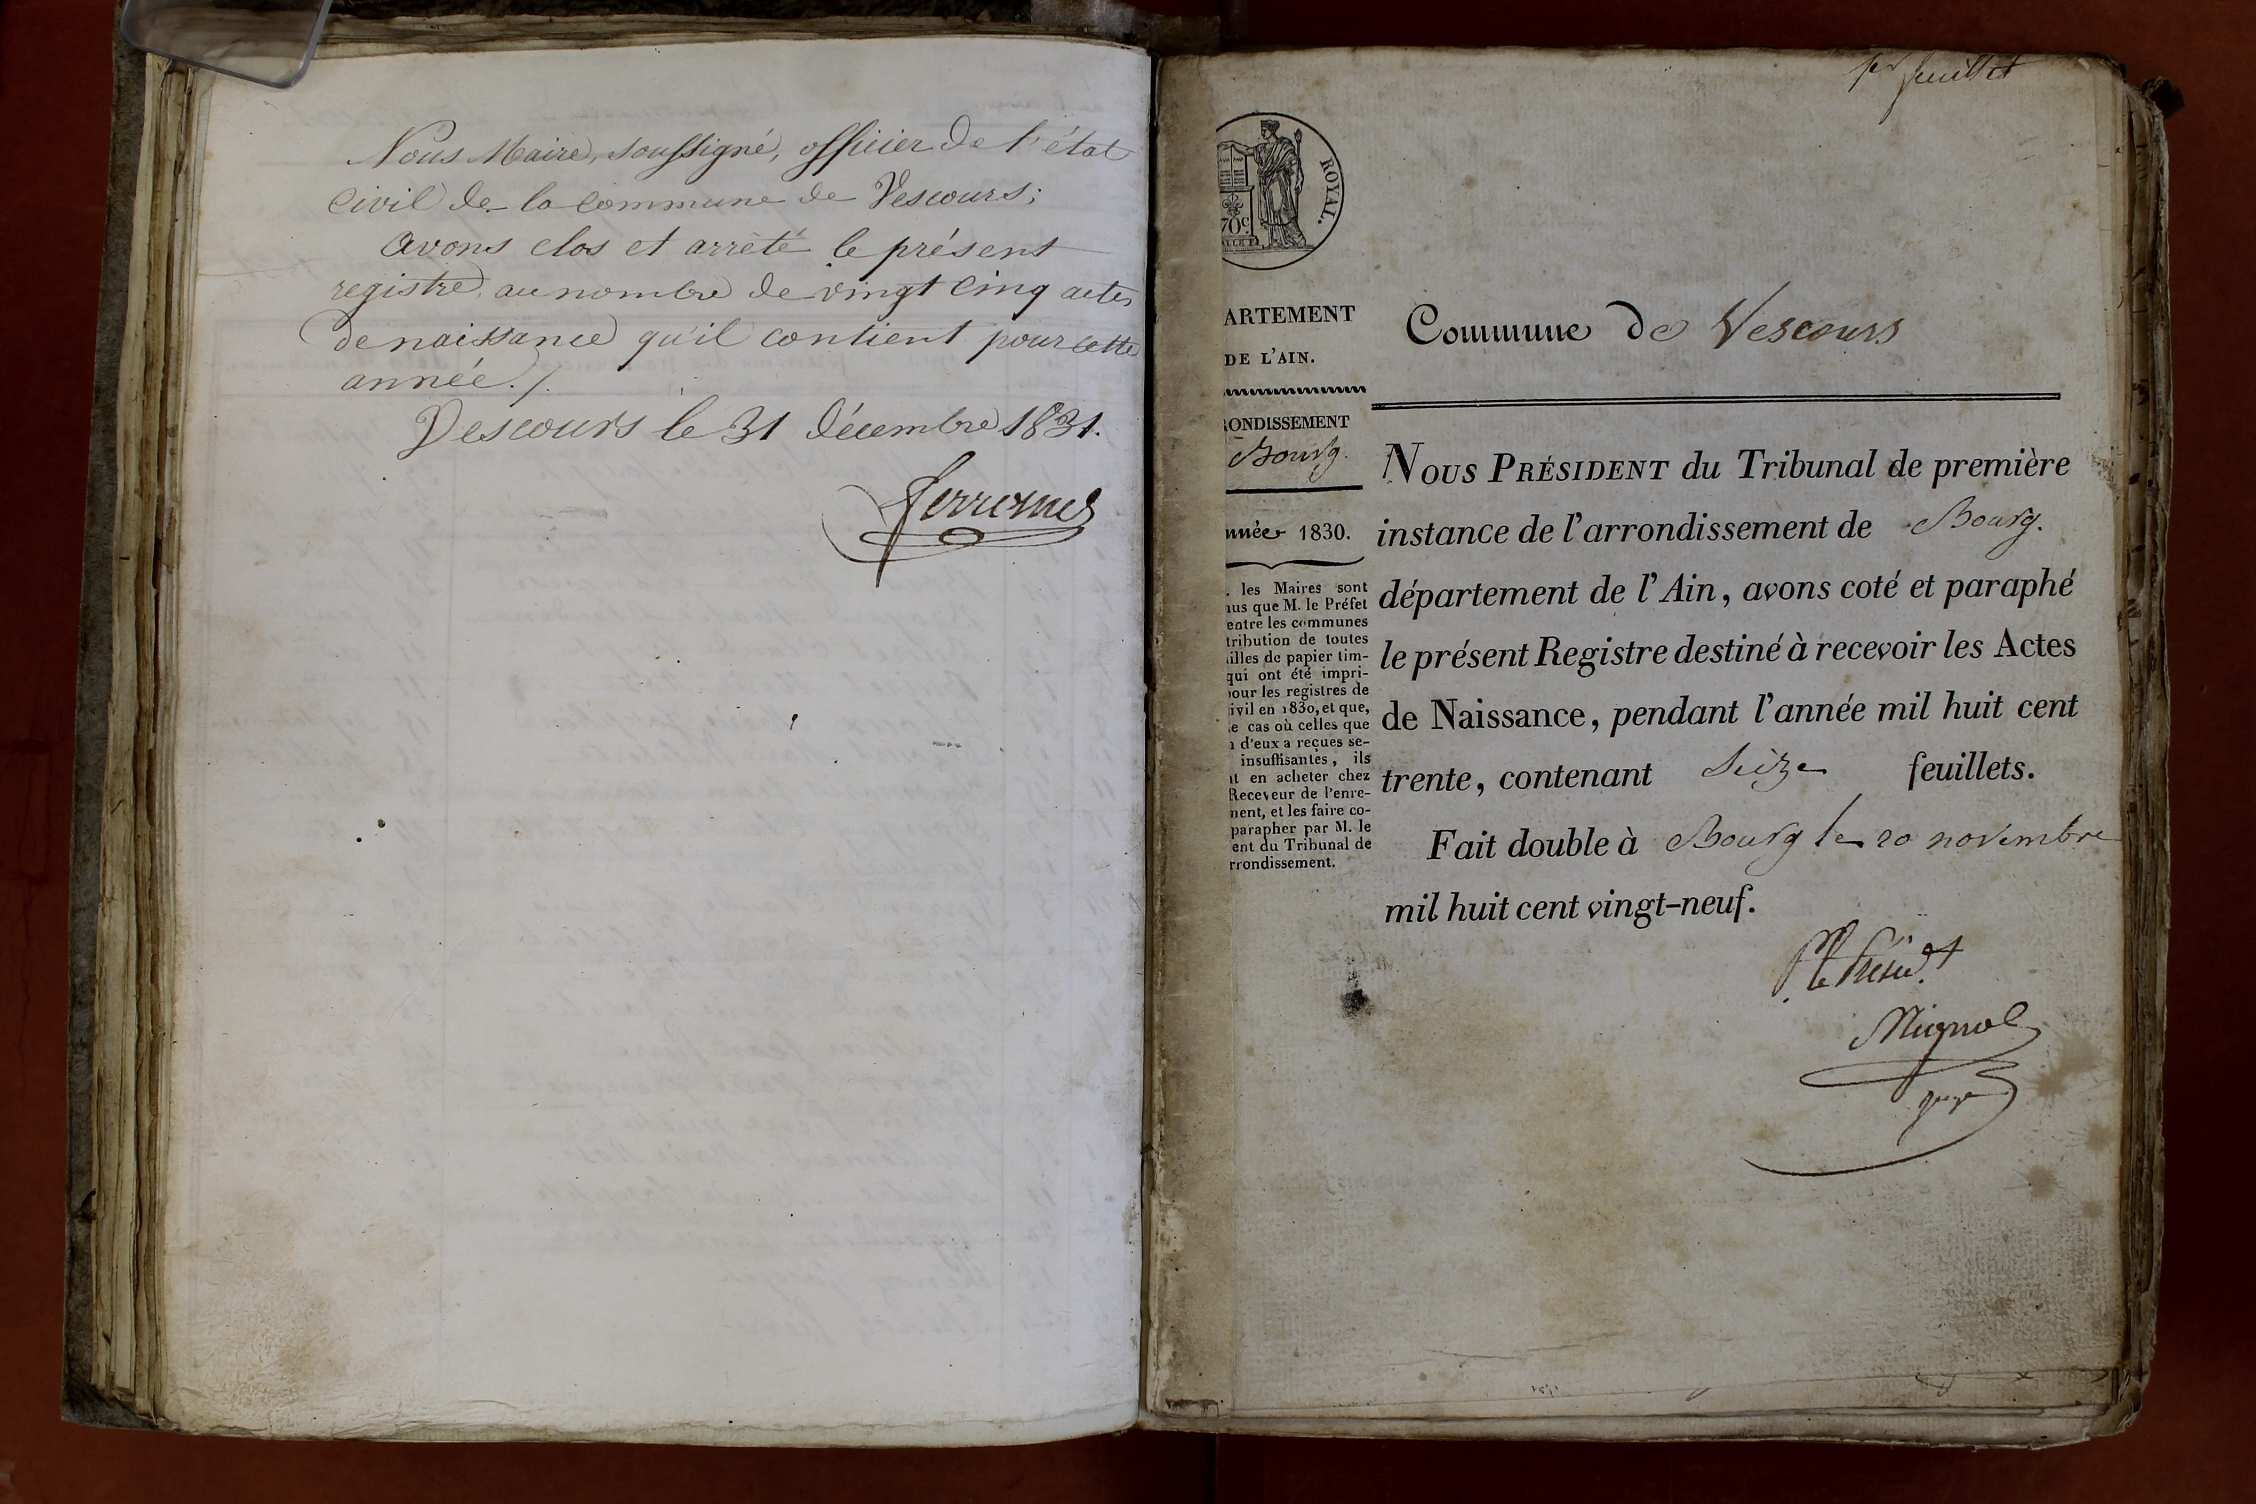 Nous Maire, soussigné, officier de l'état
civil de la commune de Vescours;
Avons clos et arrêté le présent
registre, au nombre de vingt cinq actes
de naissance qu'il contient pour cette
année./.
Vescours le 31 décembre 1831.
1er feuillet
ROYAL.
70c
ARTEMENT
DE L'AIN.
ONDISSEMENT
Bourg.
nnée 1830.
. les Maires sont
us que M. le Préfet
entre les communes
tribution de toutes
illes de papier tim-
qui ont été impri-
our les registres de
ivil en 1830, et que,
e cas où celles que
n d'eux a reçues se-
insuffisantes, ils
t en acheter chez
Receveur de l'enre-
ment, et les faire co-
parapher par M. le
ent du Tribunal de
rrondissement.
Commune de Vescours
NOUS PRÉSIDENT du Tribunal de première
instance de l'arrondissement de Bourg.
département de l'Ain, avons coté et paraphé
le présent Registre destiné à recevoir les Actes
de Naissance, pendant l'année mil huit cent
trente, contenant Seize feuillets.
Fait double à Bourg le 20 novembre
mil huit cent vingt-neuf.
P. le Présidt
juge